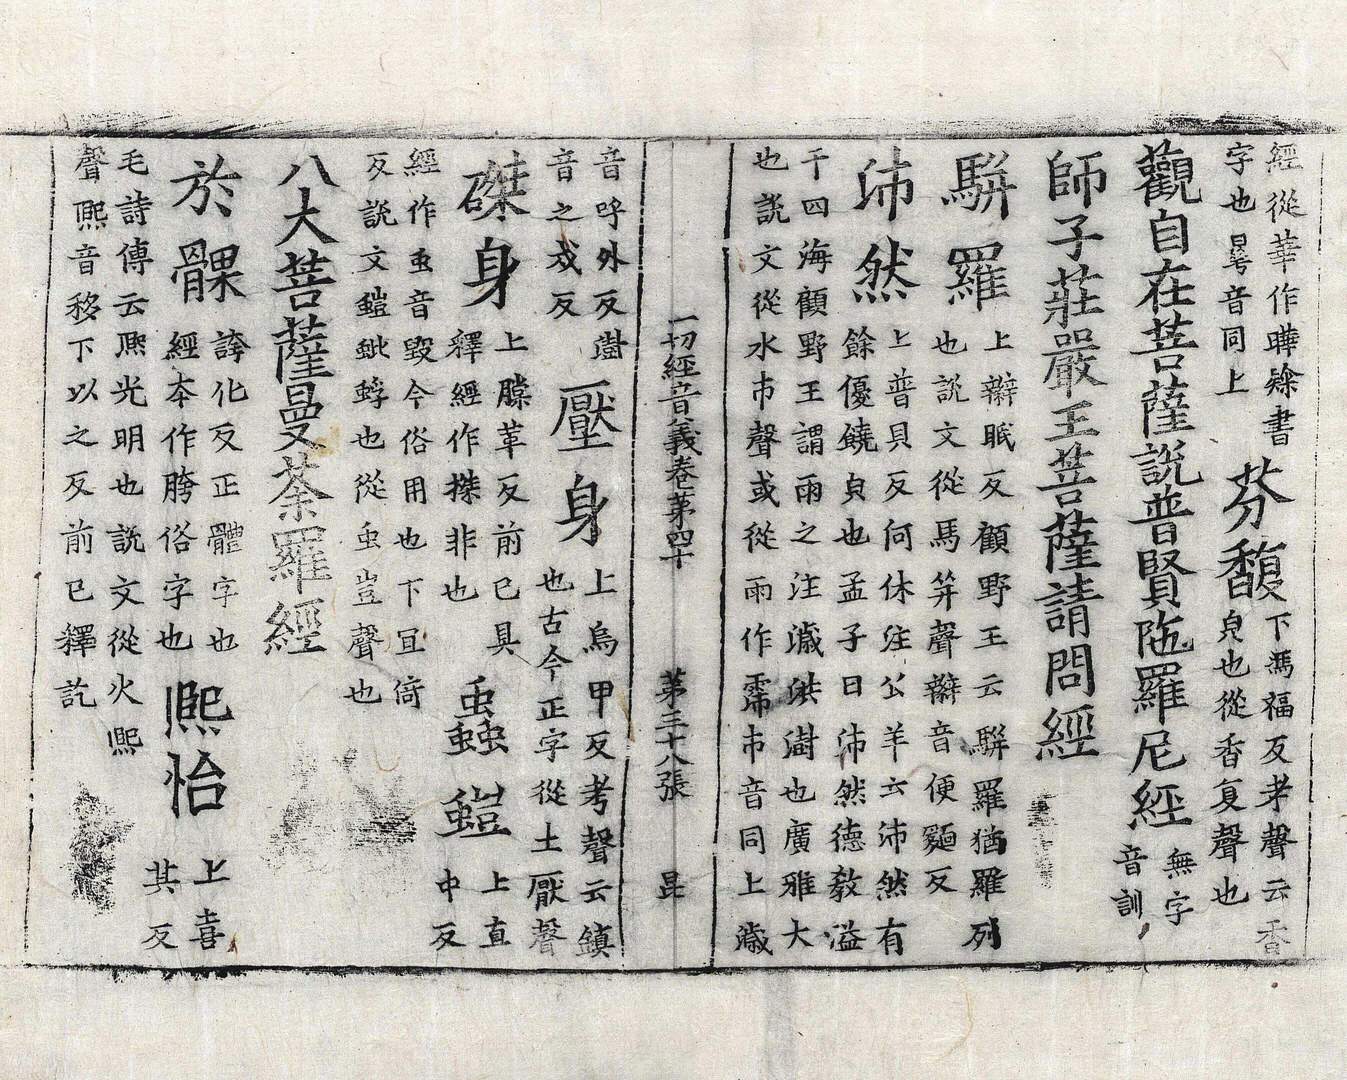 經從華作曄除書
字也曅音同上
芬馥
下馮福反考聲云香
皃也從香复聲也
觀自在菩薩說普賢陁羅尼經
無字
音訓
師子莊嚴王菩薩請問經
駢羅
上辮眠反顧野王云駢羅猶羅列
也說文從馬并聲辮音便麵反
沛然
上普貝反何休注公羊云沛然有
餘優饒皃也孟子曰沛然德教溢
于四海顧野王謂雨之注濊洪澍也廣雅大
也說文從水巿聲或從雨作霈巿音同上濊
一切經音義卷苐四十 苐三十八張 昆
音呼外反澍
音之戍反
壓身
上烏甲反考聲云鎮
也古今正字從土厭聲
磔身
上𦢊革反前已具
釋經作搩非也
蟲螘
上直
中反
經作䖝音毀今俗用也下冝倚
反說文螘蚍蜉也從虫豈聲也
八大菩薩曼荼羅經
於髁
誇化反正體字也
經夲作胯俗字也
熙怡
上喜
其反
毛詩傳云熙光明也說文從火巸
聲巸音移下以之反前已釋訖